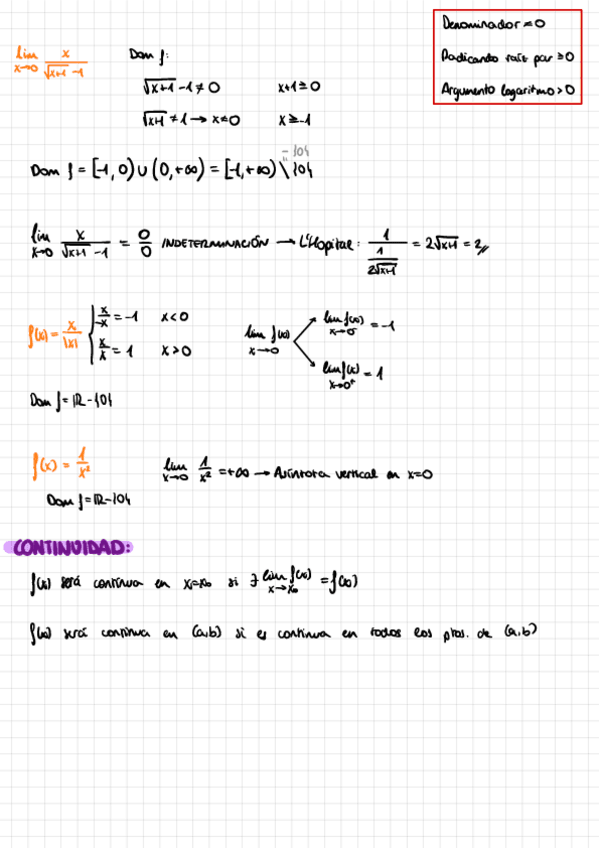 Denominador ≠ 0
Radicando raíz par ≥ 0
Argumento logaritmo > 0
lim x→0 x/(√(x+1) -1)
Dom f:
√(x+1) -1 ≠ 0 x+1 ≥ 0
√(x+1) ≠ 1 → x≠0 x ≥ -1
- {0}
"
Dom f = [-1, 0) ∪ (0, +∞) = [-1, +∞) \ {0}
lim x→0 x/(√(x+1) -1) = 0/0 INDETERMINACIÓN → L'Hopital: 1/(1/(2√(x+1))) = 2√(x+1) = 2//
f(x) = x/|x| { x/-x = -1 x<0
x/x = 1 x>0
lim x→0 f(x)
lim f(x) x→0⁻ = -1
lim f(x) x→0⁺ = 1
Dom f = ℝ - {0}
f(x) = 1/x²
lim x→0 1/x² = +∞ → Asíntota vertical en x=0
Dom f = ℝ - {0}
CONTINUIDAD:
f(x) será continua en x=x₀ si ∃ lim x→x₀ f(x) = f(x₀)
f(x) será continua en (a,b) si es continua en todos los ptos. de (a,b)